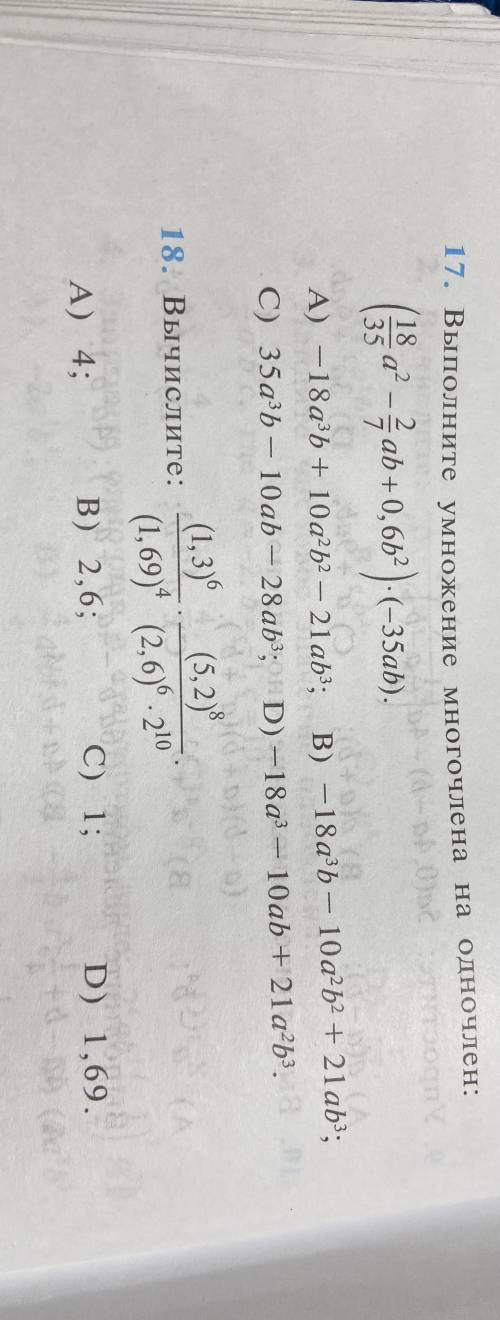 17. Выполните умножение многочлена на одночлен:
(18/35 a² − 2/7 ab + 0,6b²) · (−35ab).
A) −18a³b + 10a²b² − 21ab³; B) −18a³b − 10a²b² + 21ab³;
C) 35a³b − 10ab − 28ab³; D) −18a³ − 10ab + 21a²b³.
18. Вычислите: (1,3)⁶/(1,69)⁴ · (5,2)⁸/((2,6)⁶ · 2¹⁰).
A) 4; B) 2,6; C) 1; D) 1,69.